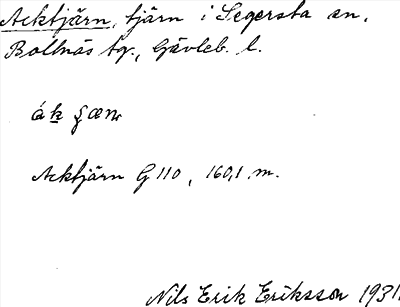 Acktjärn, tjärn i Segersta sn,
Bollnäs tg., Gävleb. l.
Acktjärn G 110, 160,1 m.
Nils Erik Eriksson 1931.